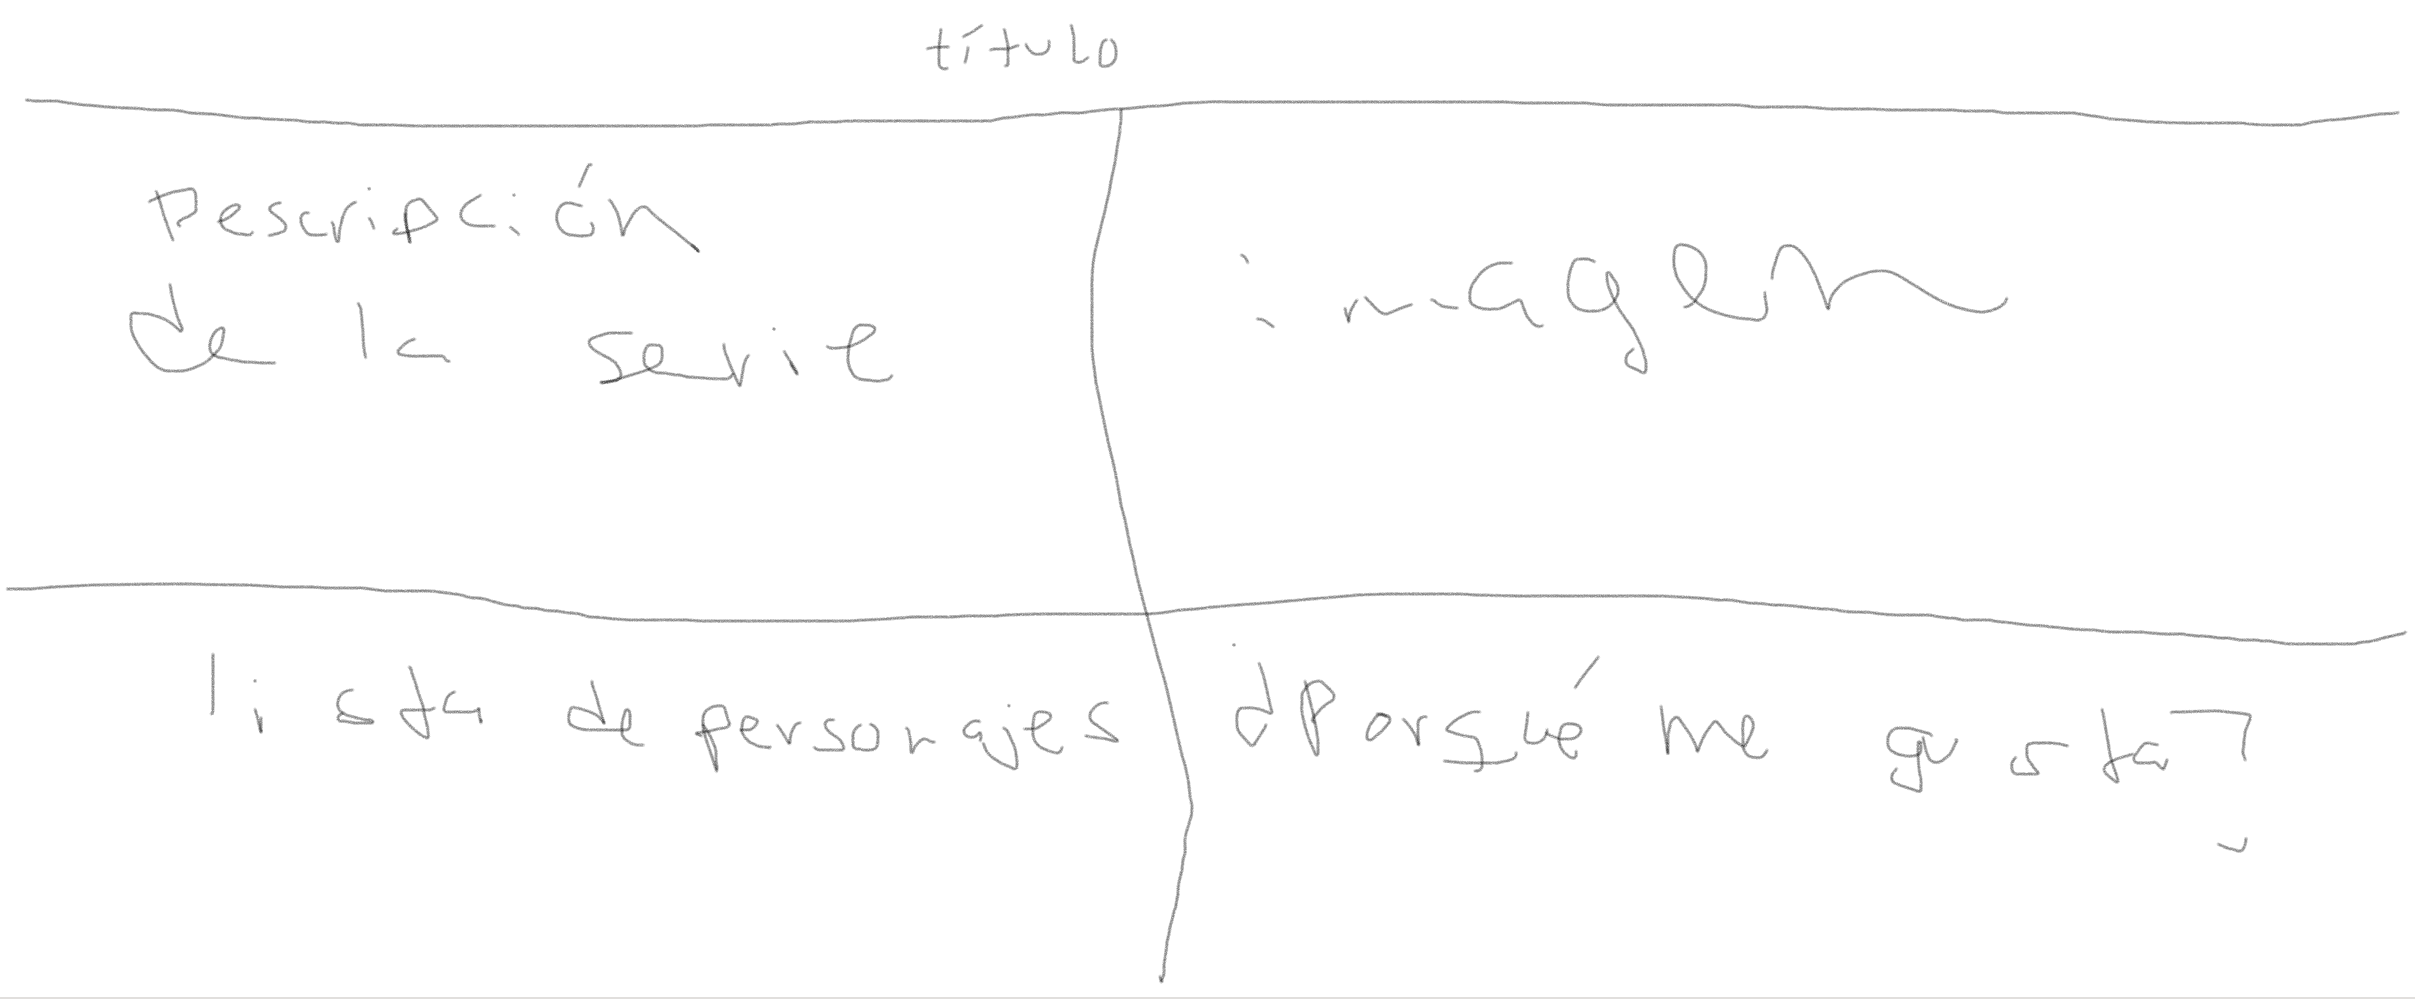 título
Descripción
de la serie
imagen
lista de personajes
¿Porqué me gusta?